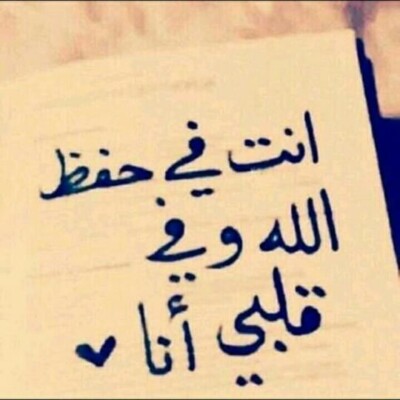 انت في حفظ
الله و في
قلبي أنا ♥